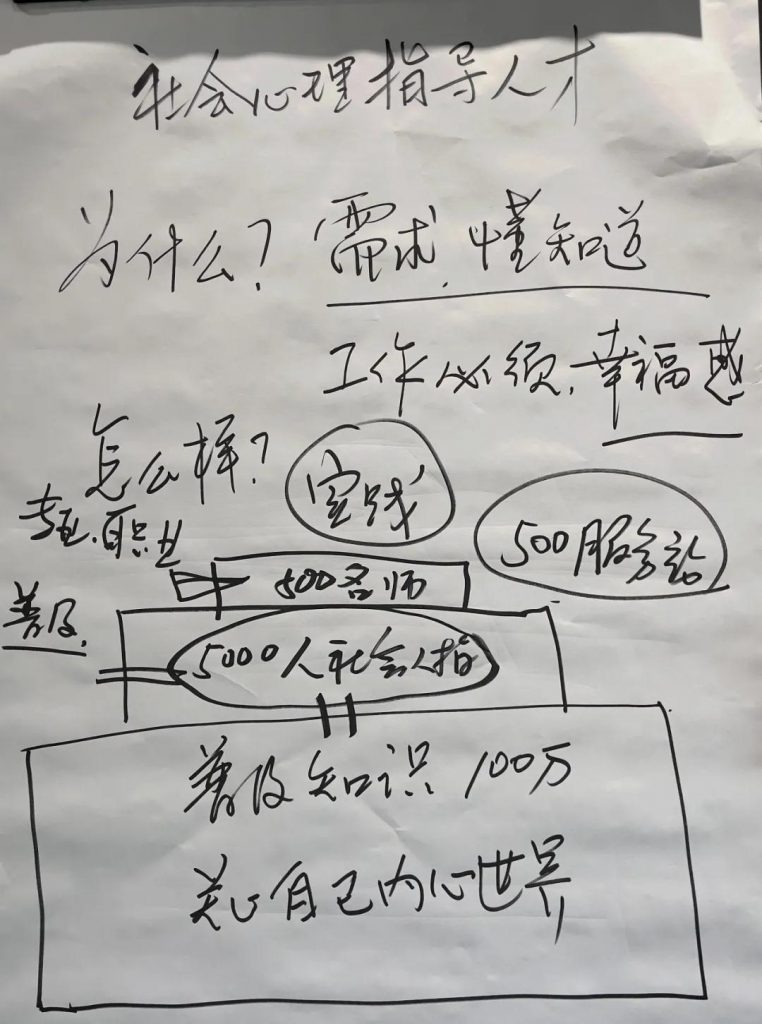 社会心理指导人才
为什么？需求，懂知道
工作必须，幸福感
怎么样？
实践
专业、职业
500服务站
500名师
普及
5000人社会心指
普及知识 100万
关心自己内心世界